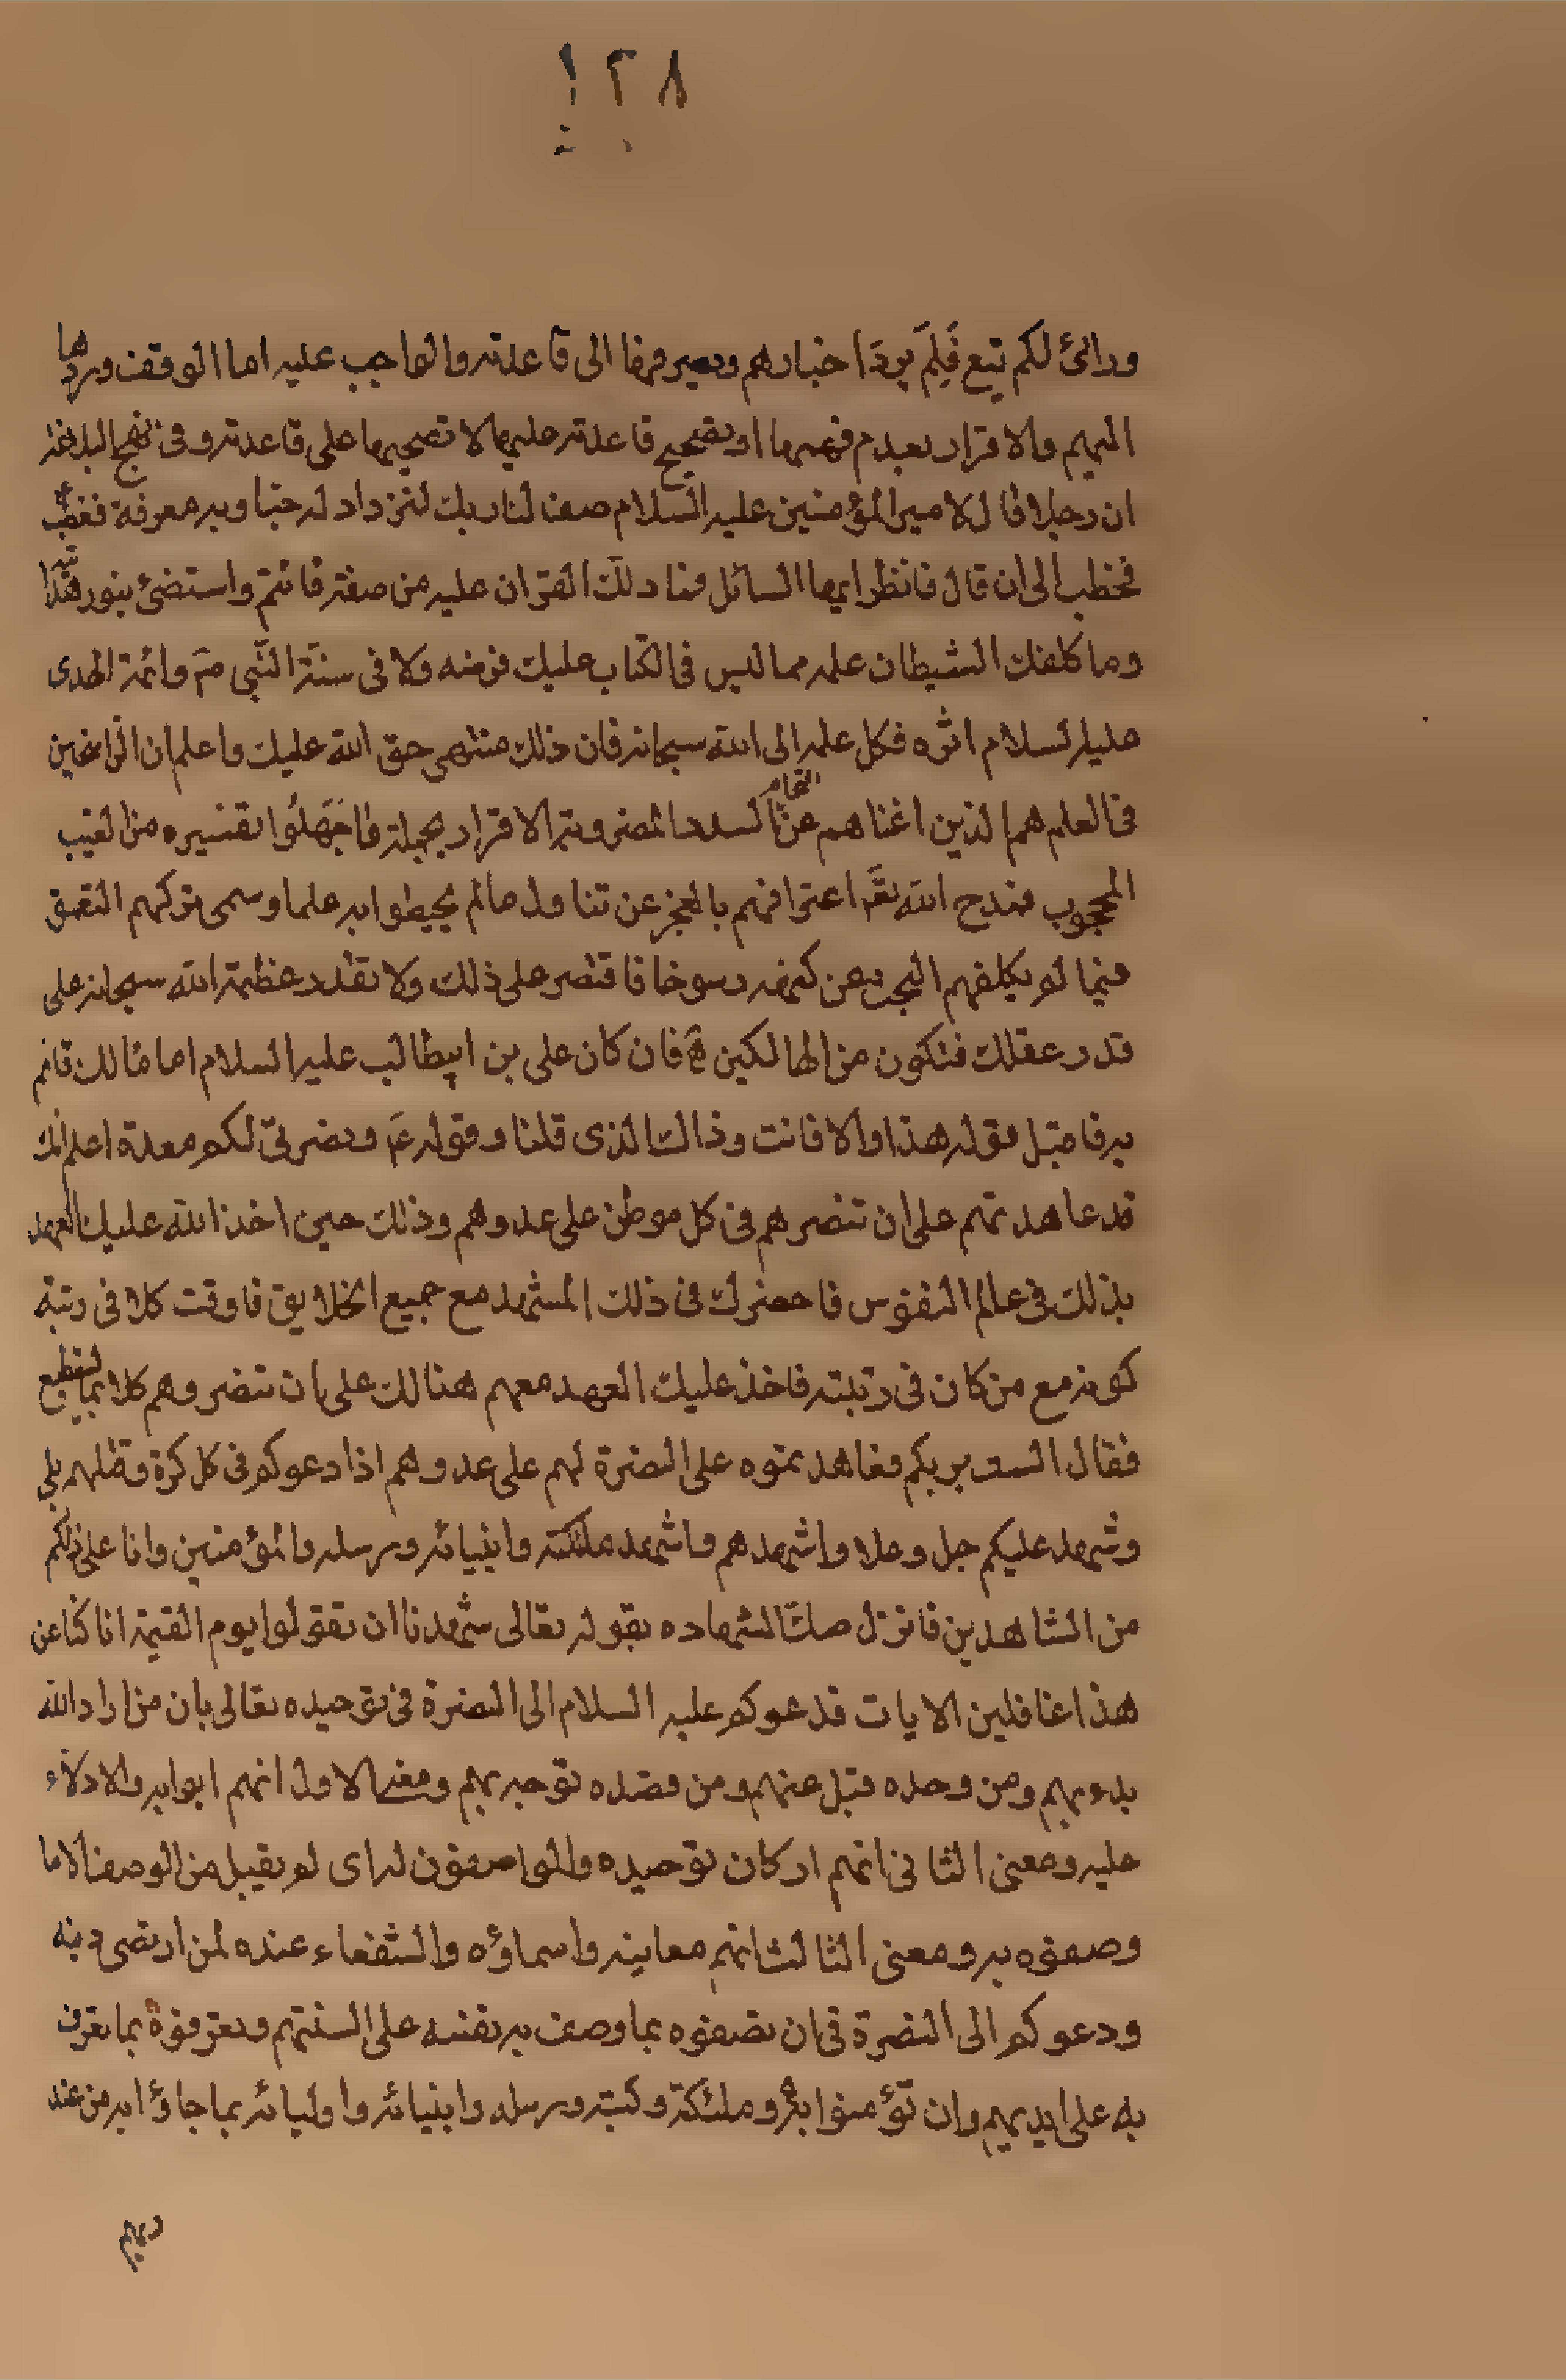 ١٢٨
ورائى لكم تبع فَلِمَ يردّ اخبارهم ويصرفها الى قاعدته والواجب عليه اما الوقف وردها
اليهم والاقرار بعدم فهمها او تصحيح قاعدته عليها لا تصحيحها على قاعدته وفى نهج البلاغة
ان رجلا قال لامير المؤمنين عليه السلام صف لنا ربك لنزداد له حبّا وبه معرفة فغضب
فخطب الى ان قال فانظر ايها السائل فما دلّك القرآن عليه من صفته فائتمّ واستضئ بنور هدايته
وما كلفك الشيطان علمه مما ليس فى الكتاب عليك فرضه ولا فى سنّة النّبى صّ وائمة الهدى
عليه السلام اثره فكل علمه الى الله سبحانه فان ذلك منتهى حق الله عليك واعلم ان الراسخين
فى العلم هم الذين اغناهم عن اقتحام السدد المضروبة الاقرار بجملة ما جَهَلُوا تفسيره من الغيب
المحجوب فمدح الله تعّ اعترافهم بالعجز عن تناول ما لم يحيطوا به علما وسمى تركهم التعمق
فيما لم يكلفهم البحث عن كنهه رسوخا فاقتصر على ذلك ولا تقدر عظمة الله سبحانه على
قدر عقلك فتكون من الهالكين هّ فان كان على بن ابيطالب عليه السلام اماما لك فائتم
به فاقبل قوله هذا والا فانت وذاك الذى قلنا وقوله عّ ونصرتى لكم معدة اعلم انك
قد عاهدتهم على ان تنصرهم فى كل موطن على عدوهم وذلك حين اخذ الله عليك العهد
بذلك فى عالم النفوس فاحضرك فى ذلك المشهد مع جميع الخلايق فاوقت كلا فى رتبة
كونه مع من كان فى رتبته فاخذ عليك العهد معهم هنالك على ان تنصروهم كلا بما يستطيع
فقال الست بربكم فعاهدتموه على النصرة لهم على عدوهم اذا دعوكم فى كل كرة وقلتم بلى
وشهد عليكم جل وعلا واشهدهم واشهد ملئكته وانبيائه ورسله والمؤمنين وانا على ذلكم
من الشاهدين فانزل صكّ الشهاده بقوله تعالى شهدنا ان تقولوا يوم القيمة انا كنا عن
هذا غافلين الايات فدعوكم عليه السلام الى النصرة فى توحيده تعالى بان من اراد الله
بدء بهم ومن وحده قبل عنهم ومن قصده توجه بهم ومعنى الاول انهم ابوابه والادلاّء
عليه ومعنى الثانى انهم اركان توحيده والواصفون له اى لم يقبل من الوصف الا ما
وصفوه به ومعنى الثالث انهم معانيه واسماؤه والشفعاء عنده لمن ارتضى دينه
ودعوكم الى النصرة فى ان تصفوه بما وصف به نفسه على السنتهم وتعرفوه بما تعرف
به على ايديهم وان تؤمنوا به وملئكته وكتبه ورسله وانبيائه واوليائه بما جاؤا به من عند
ربهم